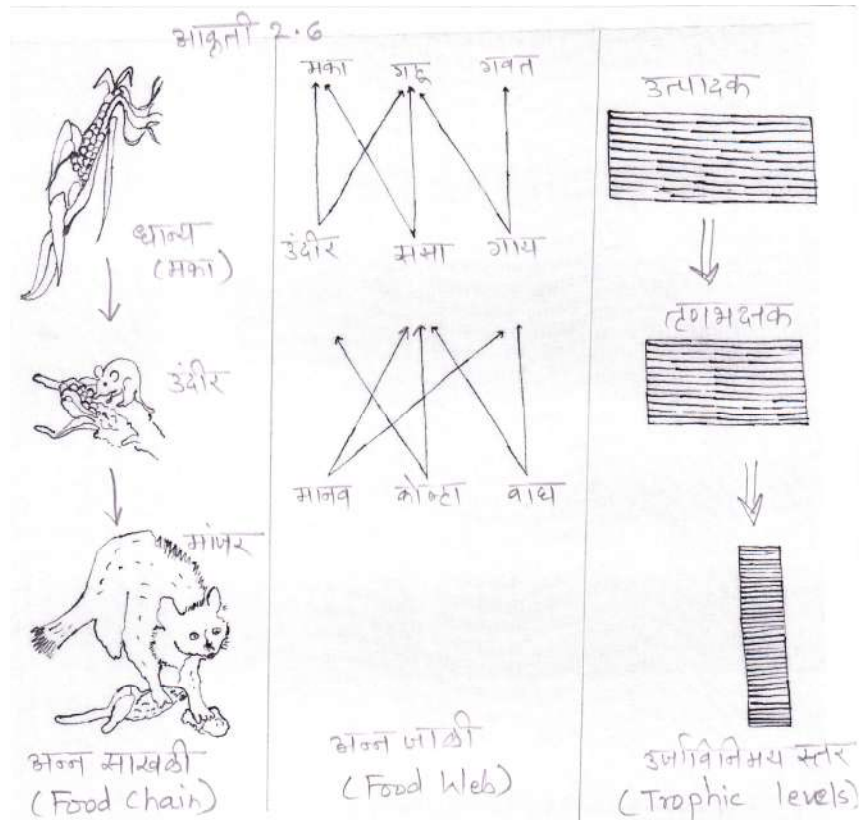 आकृती 2.6
धान्य
(मका)
उंदीर
मांजर
अन्न साखळी
(Food Chain)
मका गहू गवत
उंदीर ससा गाय
मानव कोल्हा वाघ
अन्न जाळी
(Food Web)
उत्पादक
तृणभक्षक
उर्जाविनिमय स्तर
(Trophic levels)